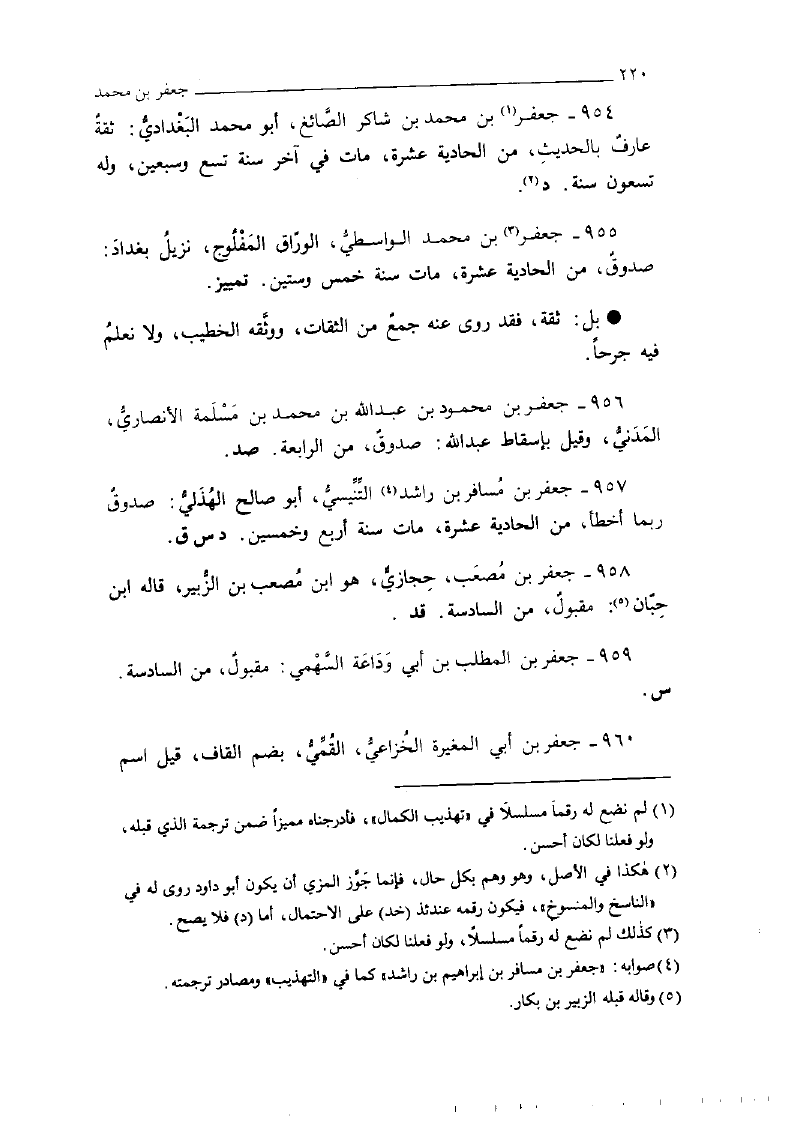 ٢٢٠ جعفر بن محمد
٩٥٤ ـ جعفر(١) بن محمد بن شاكر الصَّائغ، أبو محمد البَغْداديُّ: ثقةٌ
عارفٌ بالحديثِ، من الحادية عشرة، مات في آخر سنة تسع وسبعين، وله
تسعون سنة. د(٢).
٩٥٥ ـ جعفر(٣) بن محمد الواسطيُّ، الورّاق المَفْلُوج، نزيلُ بغدادَ:
صدوقٌ، من الحادية عشرة، مات سنة خمس وستين. تمييز.
● بل: ثقة، فقد روى عنه جمعٌ من الثقات، ووثَّقه الخطيب، ولا نعلمُ
فيه جرحاً.
٩٥٦ ـ جعفر بن محمود بن عبدالله بن محمد بن مَسْلَمة الأنصاريُّ،
المَدَنيُّ، وقيل بإسقاط عبدالله: صدوقٌ، من الرابعة. صد.
٩٥٧ ـ جعفر بن مُسافر بن راشد(٤) التِّنِّيسيُّ، أبو صالح الهُذَليُّ: صدوقٌ
ربما أخطأ، من الحادية عشرة، مات سنة أربع وخمسين. د س ق.
٩٥٨ ـ جعفر بن مُصعَب، حِجازيٌّ، هو ابن مُصعب بن الزُّبير، قاله ابن
حِبّان(٥): مقبولٌ، من السادسة. قد .
٩٥٩ ـ جعفر بن المطلب بن أبي وَدَاعَة السَّهْمي: مقبولٌ، من السادسة.
س.
٩٦٠ ـ جعفر بن أبي المغيرة الخُزاعيُّ، القُمِّيُّ، بضم القاف، قيل اسم
(١) لم نضع له رقماً مسلسلاً في «تهذيب الكمال»، فأدرجناه مميزاً ضمن ترجمة الذي قبله،
ولو فعلنا لكان أحسن.
(٢) هٰكذا في الأصل، وهو وهم بكل حال، فإنما جَوَّز المزي أن يكون أبو داود روى له في
«الناسخ والمنسوخ»، فيكون رقمه عندئذ (خد) على الاحتمال، أما (د) فلا يصح.
(٣) كذٰلك لم نضع له رقماً مسلسلاً، ولو فعلنا لكان أحسن.
(٤) صوابه: «جعفر بن مسافر بن إبراهيم بن راشد» كما في «التهذيب» ومصادر ترجمته.
(٥) وقاله قبله الزبير بن بكار.